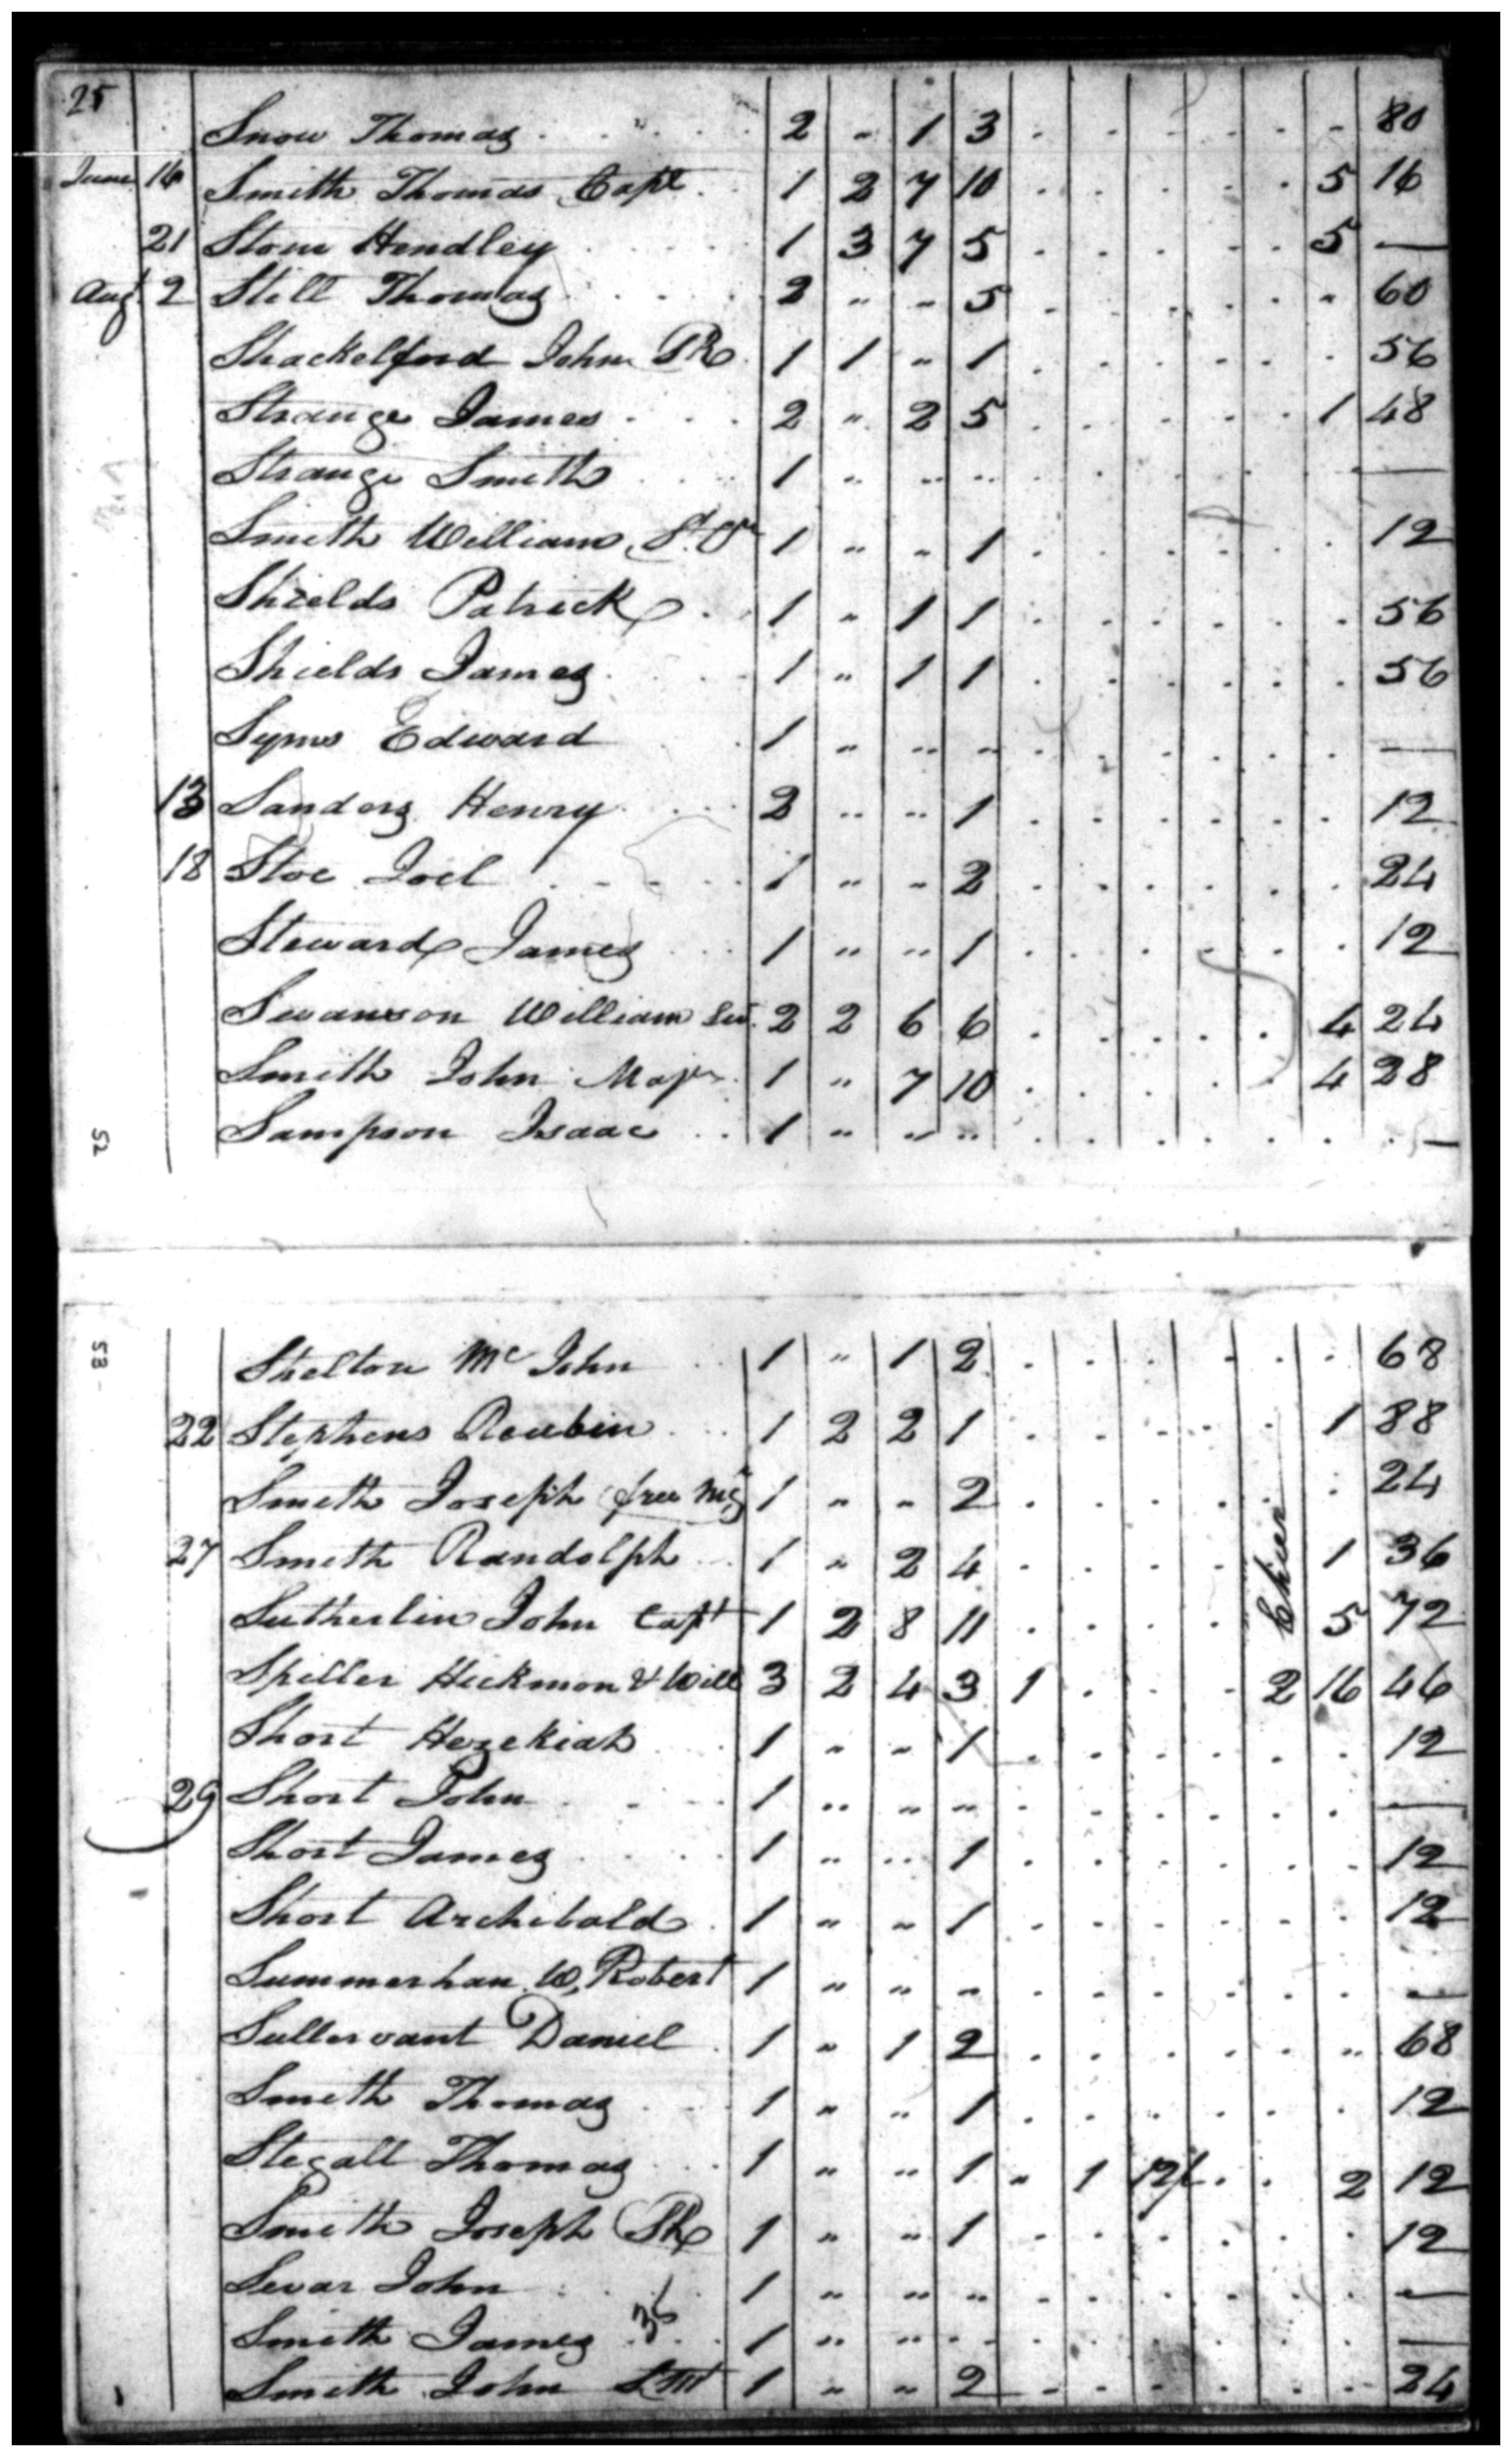 25
Snow Thomas 2 " 1 3 . . . . . . 80
June 16 Smith Thomas Capt. 1 2 7 10 . . . . . 5 16
21 Stone Hendley 1 3 7 5 . . . . . 5 —
Augt. 2 Still Thomas 2 " " 5 . . . . . " 60
Shackelford John PR 1 1 " 1 . . . . . . 56
Strange James 2 " 2 5 . . . . . 1 48
Strange Smith 1 " " " . . . . . . —
Smith William 1 " " 1 . . . . . . 12
Shields Patrick 1 " 1 1 . . . . . . 56
Shields James 1 " 1 1 . . . . . . 56
Syms Edward 1 " " " . . . . . . —
13 Sanders Henry 2 " " 1 . . . . . . 12
18 Stoe Joel 1 " " 2 . . . . . . 24
Steward James 1 " " 1 . . . . . . 12
Swanson William Sen. 2 2 6 6 . . . . . 4 24
Smith John Majr. 1 " 7 10 . . . . . 4 28
Sampson Isaac 1 " " " . . . . . . —
52
53
Shelton Mc John 1 " 1 2 . . . . . . 68
22 Stephens Reubin 1 2 2 1 . . . . . 1 88
Smith Joseph (free 1 " " 2 . . . . . . 24
27 Smith Randolph 1 " 2 4 . . . . 1 36
Sutherlin John Capt 1 2 8 11 . . . . 5 72
Spiller Hickmon & Will 3 2 4 3 1 . . . 2 16 46
Short Hezekiah 1 " " 1 . . . . . . 12
29 Short John 1 " " " . . . . . . —
Short James 1 " " 1 . . . . . . 12
Short Archibald 1 " " 1 . . . . . . 12
Summerhan W, Robert 1 " " " . . . . . . —
Sullervant Daniel 1 " 1 2 . . . . . " 68
Smith Thomas 1 " " 1 . . . . . . 12
Stegall Thomas 1 " " 1 " 1 12/ . . 2 12
Smith Joseph 1 " " 1 . . . . . . 12
Sevar John 1 " " " . . . . . . —
Smith James 36 1 " " " . . . . . . —
Smith John 1 " " 2 . . . . . . 24